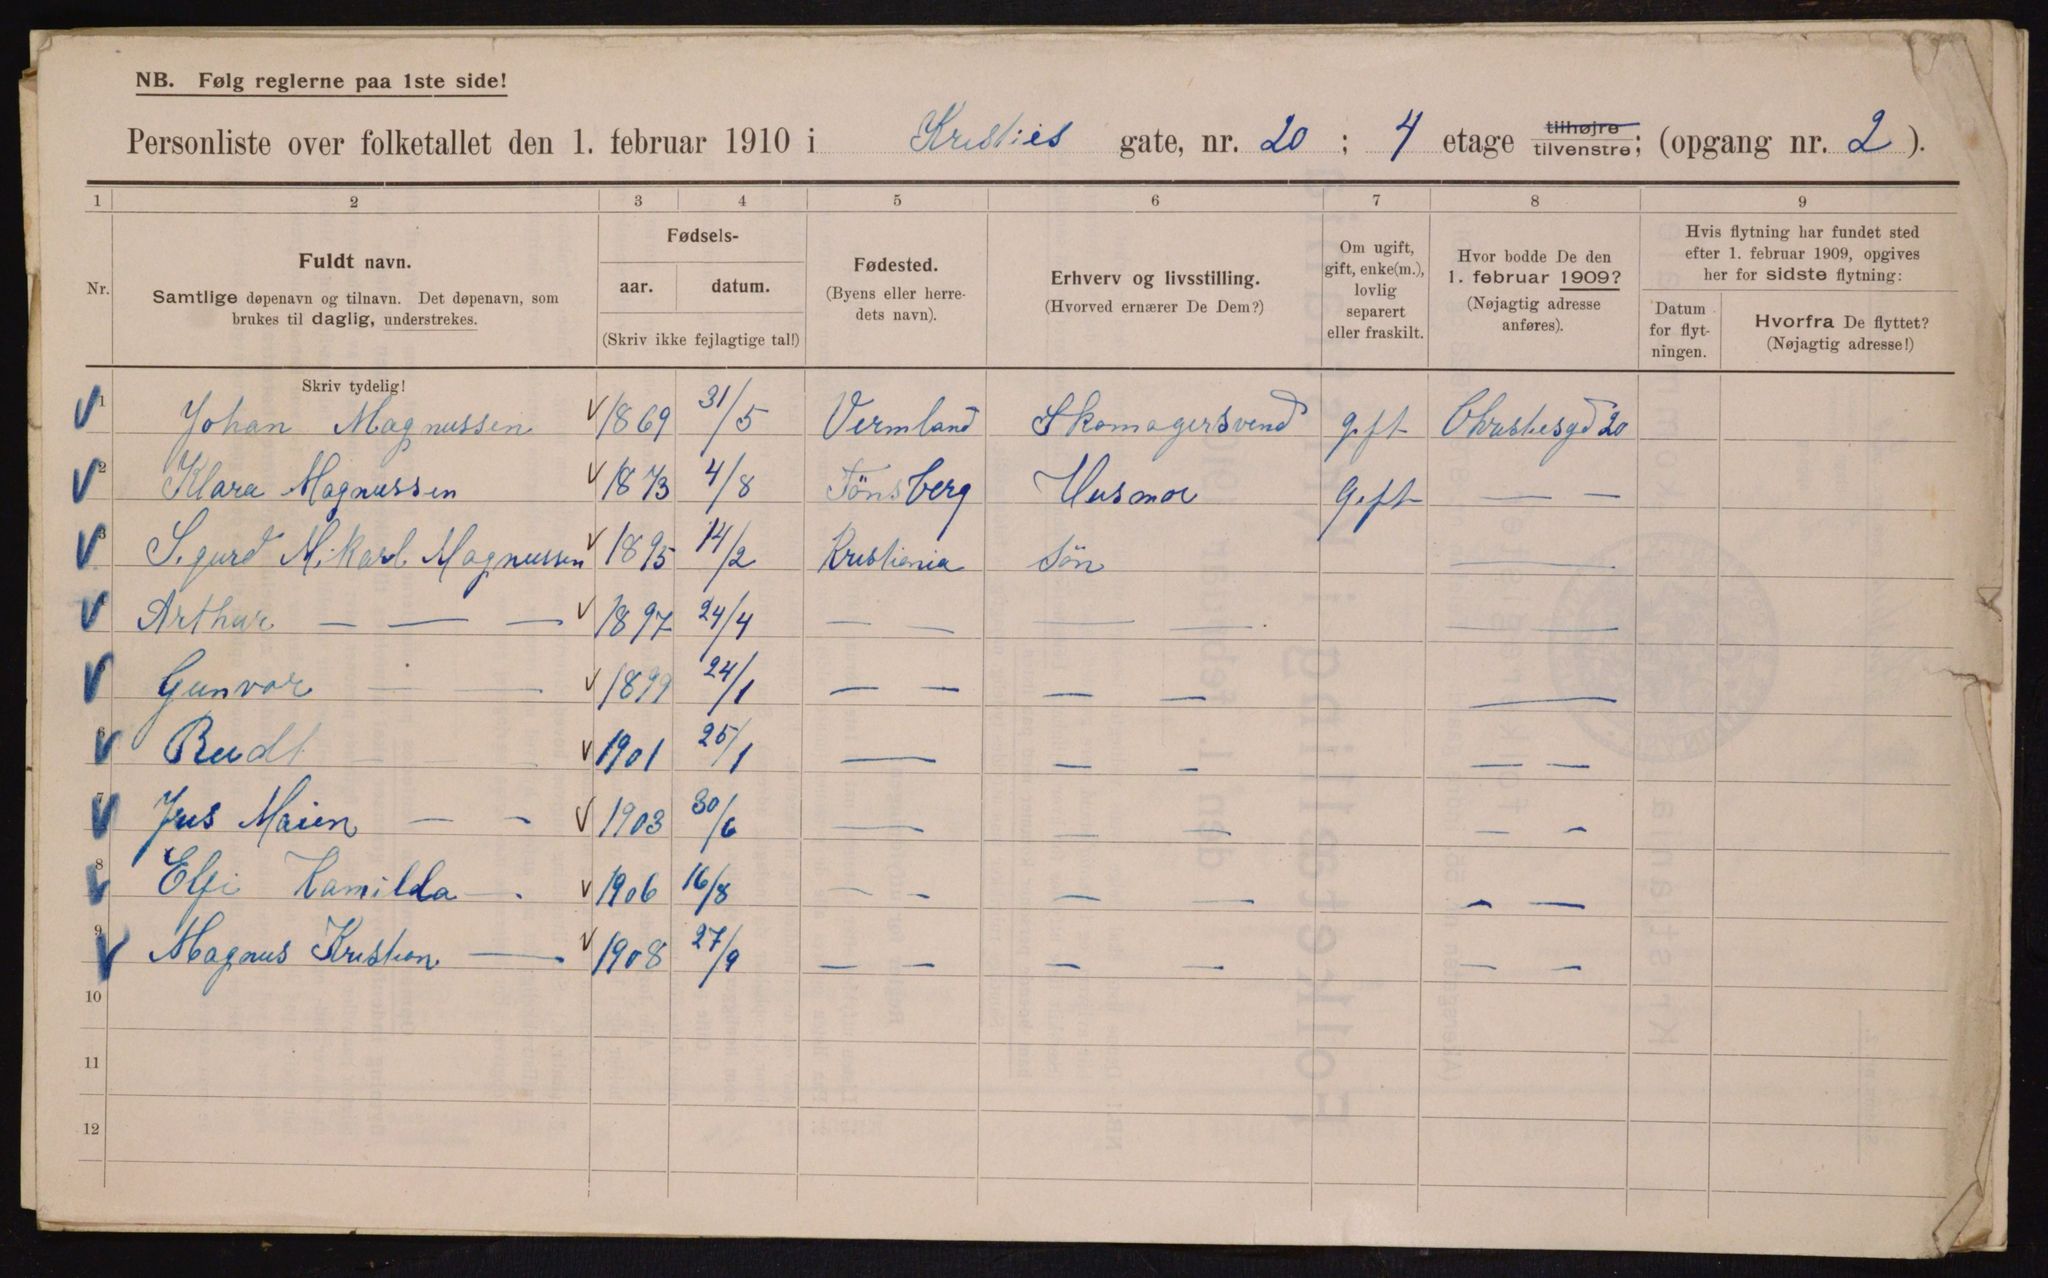 NB. Følg reglerne paa 1ste side!
Personliste over folketallet den 1. februar 1910 i Kristies gate, nr. 20 ; 4 etage tilhøjre tilvenstre; (opgang nr. 2 ).
1 2 3 4 5 6 7 8 9
Nr.
Fuldt navn.
Samtlige døpenavn og tilnavn. Det døpenavn, som
brukes til daglig, understrekes.
Skriv tydelig!
Fødsels-
aar. datum.
(Skriv ikke fejlagtige tal!)
Fødested.
(Byens eller herre-
dets navn).
Erhverv og livsstilling.
(Hvorved ernærer De Dem?)
Om ugift,
gift, enke(m.),
lovlig
separert
eller fraskilt.
Hvor bodde De den
1. februar 1909?
(Nøjagtig adresse
anføres).
Hvis flytning har fundet sted
efter 1. februar 1909, opgives
her for sidste flytning:
Datum
for flyt-
ningen.
Hvorfra De flyttet?
(Nøjagtig adresse!)
1 Johan Magnussen 1869 31/5 Vermland Skomagersvend gift Christiesgd 20
2 Klara Magnussen 1873 4/8 Tönsberg Husmor Gift — —
3 Sigurd Mikael Magnussen 1895 14/2 Kristiania Sön —
4 Arthur — — — 1897 24/4 — — — — — —
5 Gunvor — — 1899 24/1 — — — — —
6 — — — 1901 25/1 — — — — —
7 — — 1903 30/6 — — — — —
8 Kamilda — 1906 16/8 — — — — — —
9 Magnus Kristian — 1908 27/9 — — — — — —
10
11
12